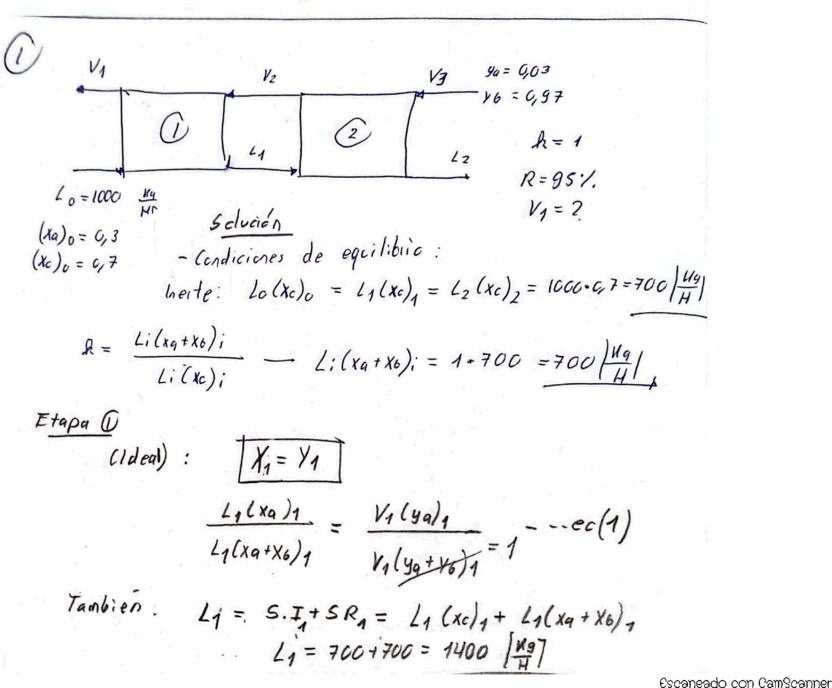 ①
V1
V2
V3
ya = 0,03
yb = 0,97
①
②
k = 1
L1
L2
R = 95%
L0 = 1000 Kg/Hr
V1 = ?
(xa)0 = 0,3
Solución
(xc)0 = 0,7
- Condiciones de equilibrio :
Inerte: L0(xc)0 = L1(xc)1 = L2(xc)2 = 1000·0,7 = 700 |Kg/H|
k = Li(xa+xb)i / Li(xc)i — Li(xa+xb)i = 1·700 = 700 |Kg/H|
Etapa ①
(Ideal) : X1 = Y1
L1(xa)1 / L1(xa+xb)1 = V1(ya)1 / V1(ya+yb)1 = 1 - --ec(1)
También. Li = S.I1 + SR1 = L1(xc)1 + L1(xa+xb)1
Li = 700+700 = 1400 [Kg/H]
Escaneado con CamScanner